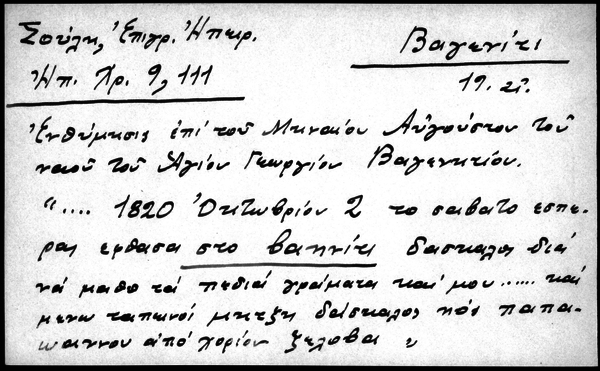 Σούλη, Ἐπιγρ. Ἠπειρ.
Ἠπ. Χρ. 9, 111
Βαγενίτι
19. αἰ.
Ἐνθύμησις ἐπί τοῦ Μηναίου Αὐγούστου τοῦ
ναοῦ τοῦ Ἁγίου Γεωργίου Βαγενητίου.
".... 1820 Ὀκτωβρίου 2 το σαβατο εσπε-
ρας ερθασα στο βαηνίτι δασκαλος διά
νά μαθο τά πεδιά γράματα καί μου ...... καί
μενω ταπινοί μητξη δάσκαλος κός παπα-
ωαννου ἀπό χορίον ξελοβα "